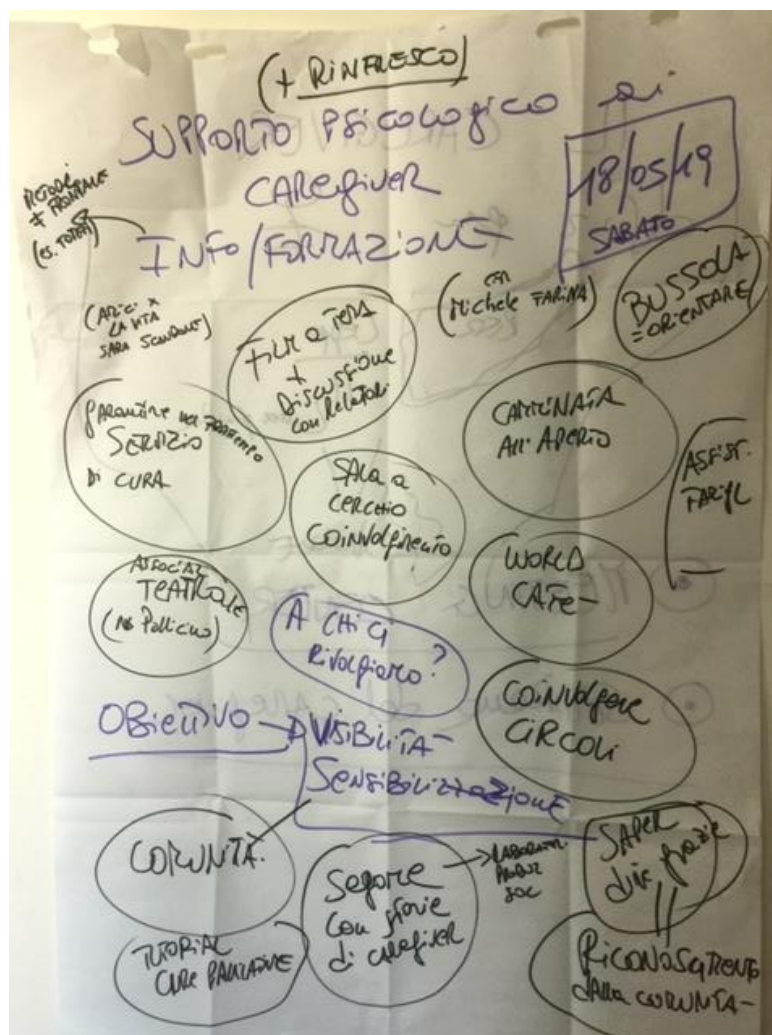 (+ RINFRESCO)
SUPPORTO PSICOLOGICO ai
CAREGIVER
INFO/FORMAZIONE
18/05/19
SABATO
≠ FRONTALE
(es. TOTEM)
(AMICI X
LA VITA
SARA
(con
Michele FARINA)
BUSSOLA
= ORIENTARE
FILM a TEMA
+
DISCUSSIONE
con Relatori
GARANTIRE nel FRATTEMPO
SERVIZIO
DI CURA
CAMMINATA
All'APERTO
ASSIST.
FAMIL
SALA a
CERCHIO
COINVOLGIMENTO
ASSOCIAZ
TEATRALE
(no Pollicino)
WORLD
CAFE-
A CHI CI
Rivolgiamo?
COINVOLGERE
CIRCOLI
OBIETTIVO → VISIBILITA-
SENSIBILIZZAZIONE
COMUNITA.
Sagome
con storie
di caregiver
LABORATORI
SOC
SAPER
dire grazie
TUTORIAL
CURE PALLIATIVE
RICONOSCIMENTO
dalla COMUNITA-